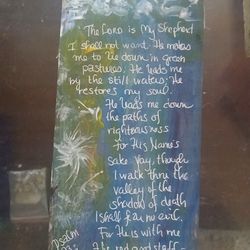 The LORD is My Shepherd
I shall not want. He makes
me to lie down in green
pastures. He leads me
by the still waters; He
restores my soul.
He leads me down
the paths of
righteousness
For His Name's
sake Yay, though
I walk thru the
valley of the
shadow of death
I shall fear no evil.
For He is with me
The rod and staff -
Psalm